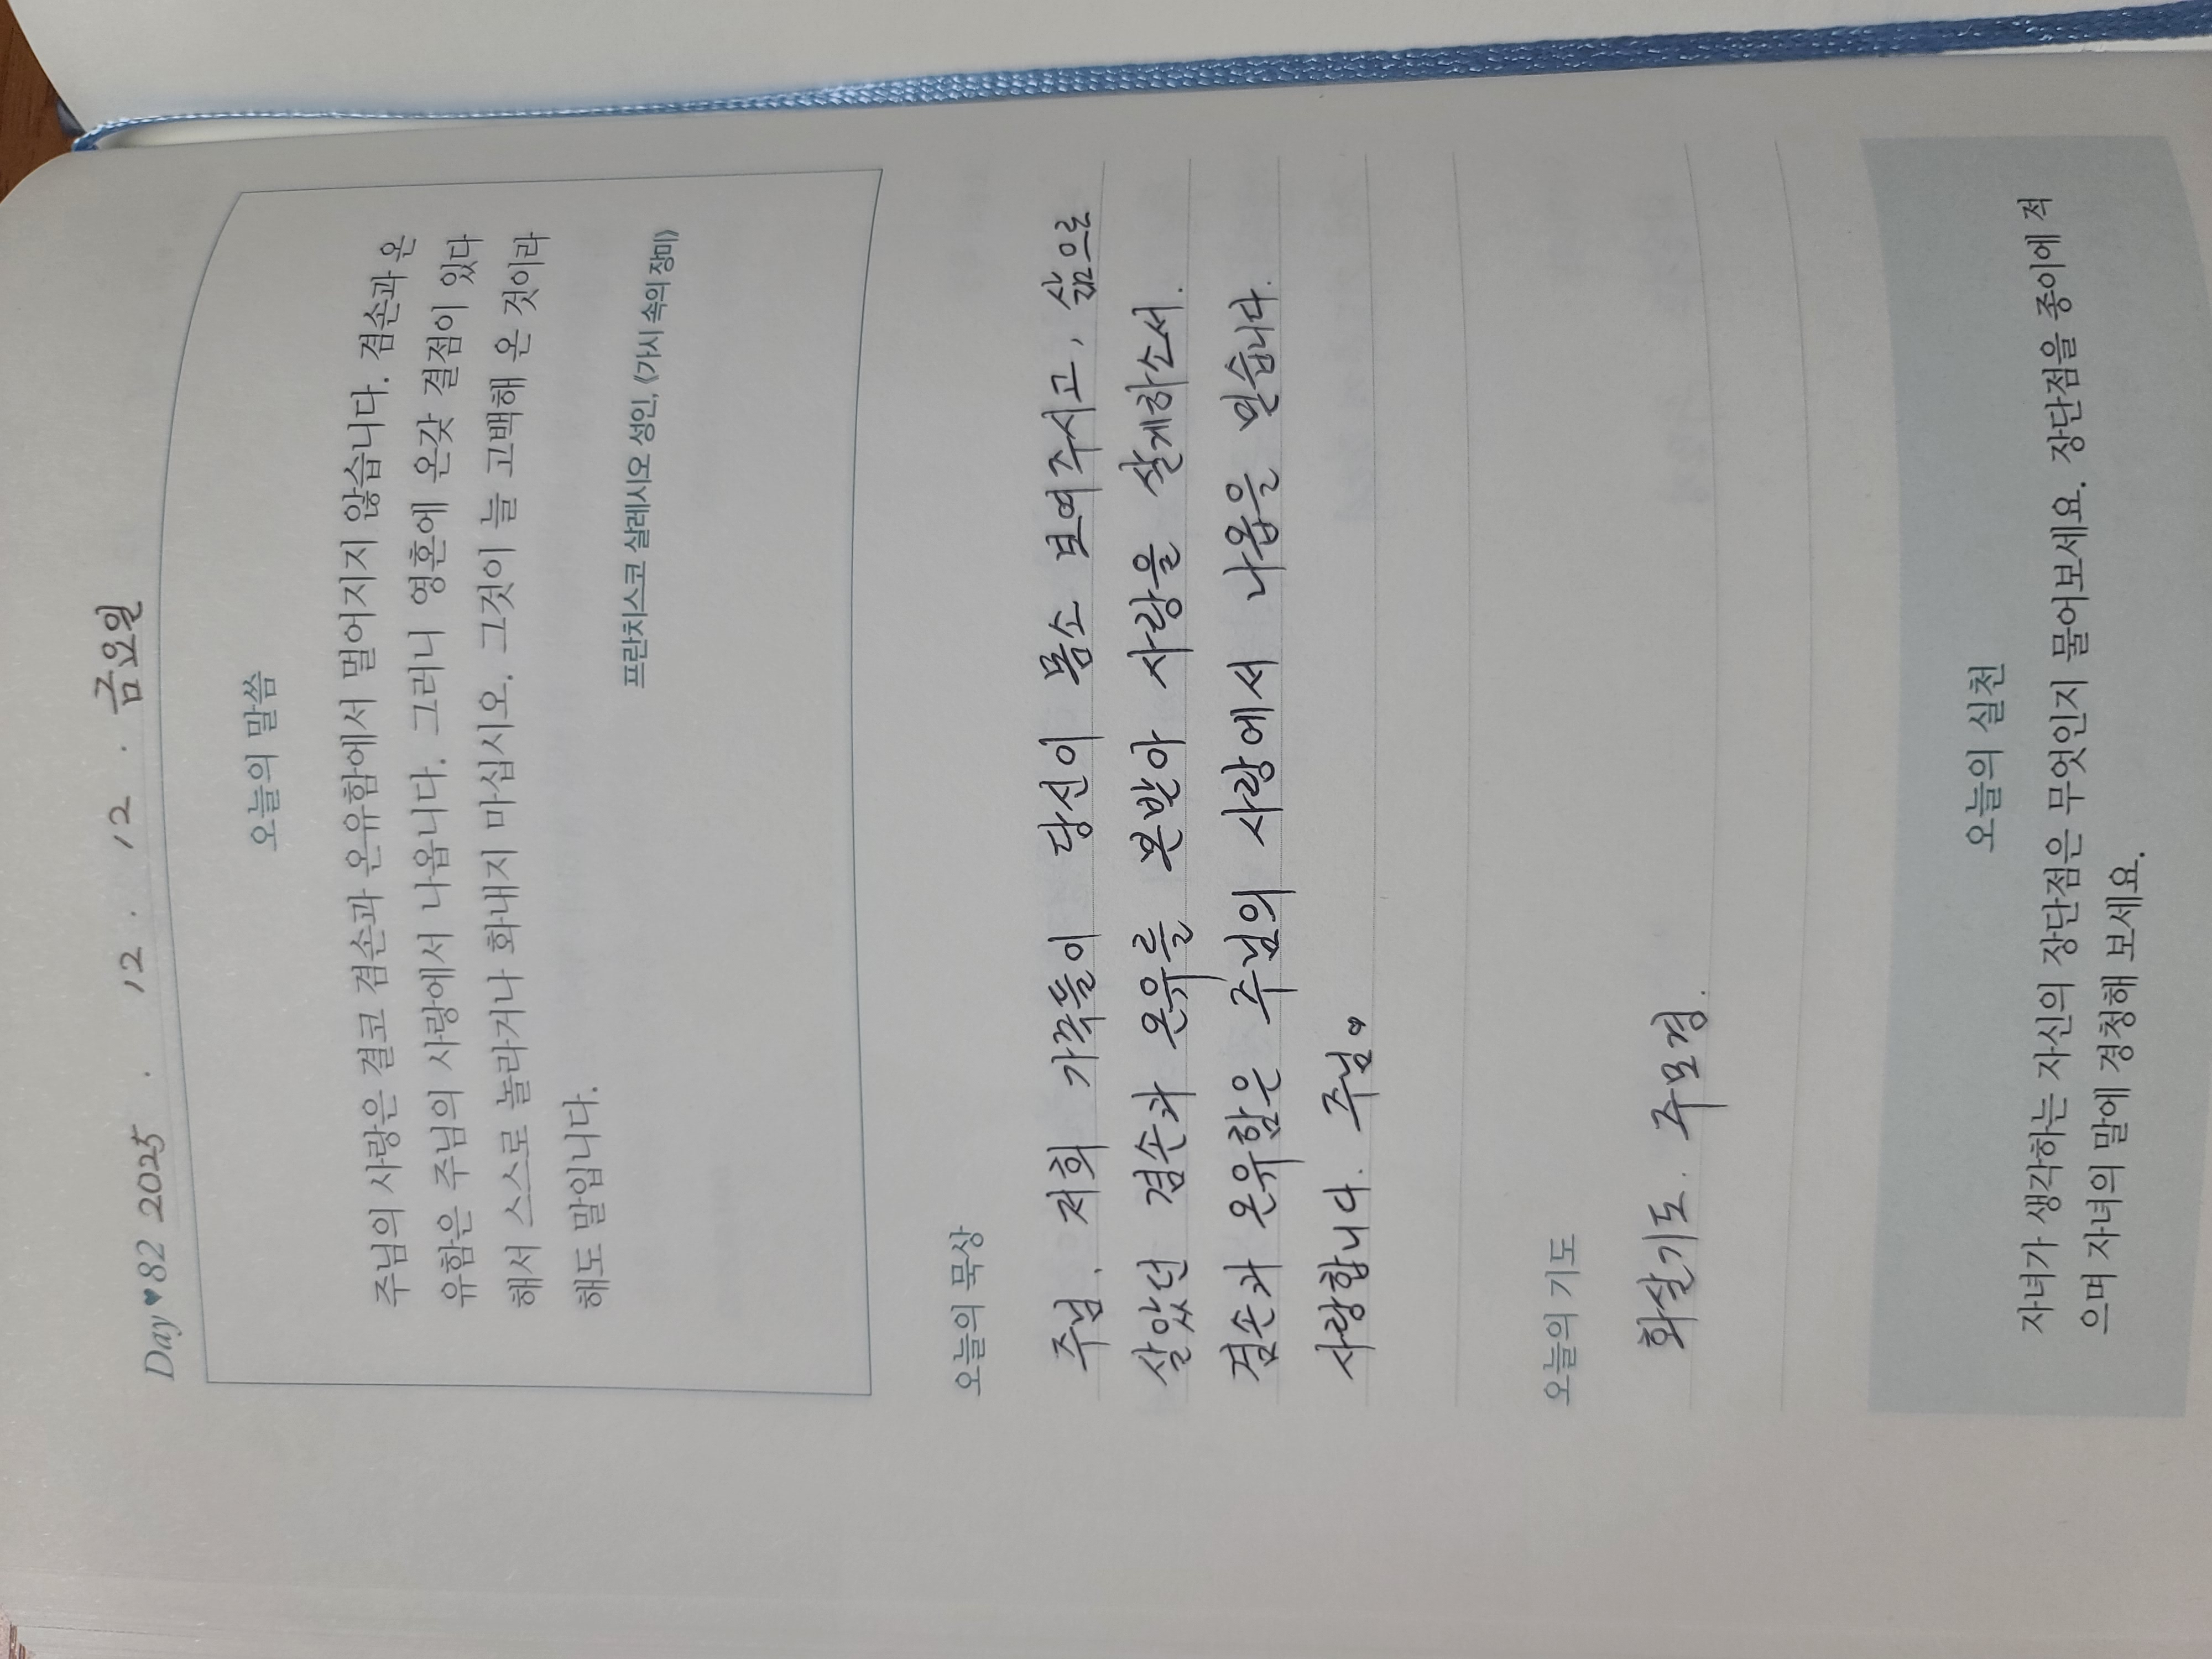 Day ♥ 82 2025 . 12 . 12 . 금요일
오늘의 말씀
주님의 사랑은 결코 겸손과 온유함에서 멀어지지 않습니다. 겸손과 온
유함은 주님의 사랑에서 나옵니다. 그러니 영혼에 온갖 결점이 있다
해서 스스로 놀라거나 화내지 마십시오. 그것이 늘 고백해 온 것이라
해도 말입니다.
프란치스코 살레시오 성인, 《가시 속의 장미》
오늘의 묵상
주님. 저희 가족들이 당신이 몸소 보여주시고, 삶으로
살았던 겸손과 온유를 본받아 사랑을 살게하소서.
겸손과 온유함은 주님의 사랑에서 나옴을 믿습니다.
사랑합니다. 주님
오늘의 기도
화살기도. 주모경.
오늘의 실천
자녀가 생각하는 자신의 장단점은 무엇인지 물어보세요. 장단점을 종이에 적
으며 자녀의 말에 경청해 보세요.